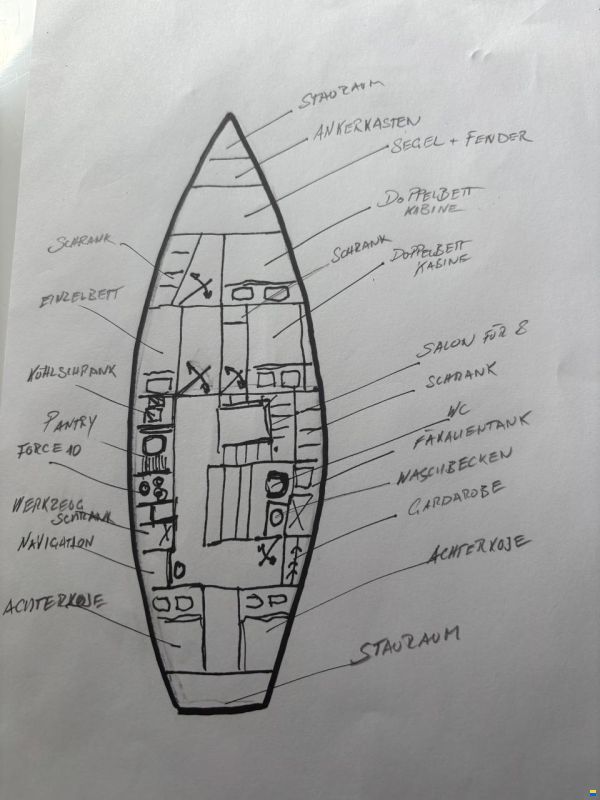 STAURAUM
ANKERKASTEN
SEGEL + FENDER
DOPPELBETT
KABINE
SCHRANK
DOPPELBETT
KABINE
SALON FÜR 8
SCHRANK
WC
FÄKALIENTANK
WASCHBECKEN
GARDAROBE
ACHTERKOJE
STAURAUM
SCHRANK
EINZELBETT
KÜHLSCHRANK
PANTRY
FORCE 10
WERKZEUG
SCHRANK
NAVIGATION
ACHTERKOJE